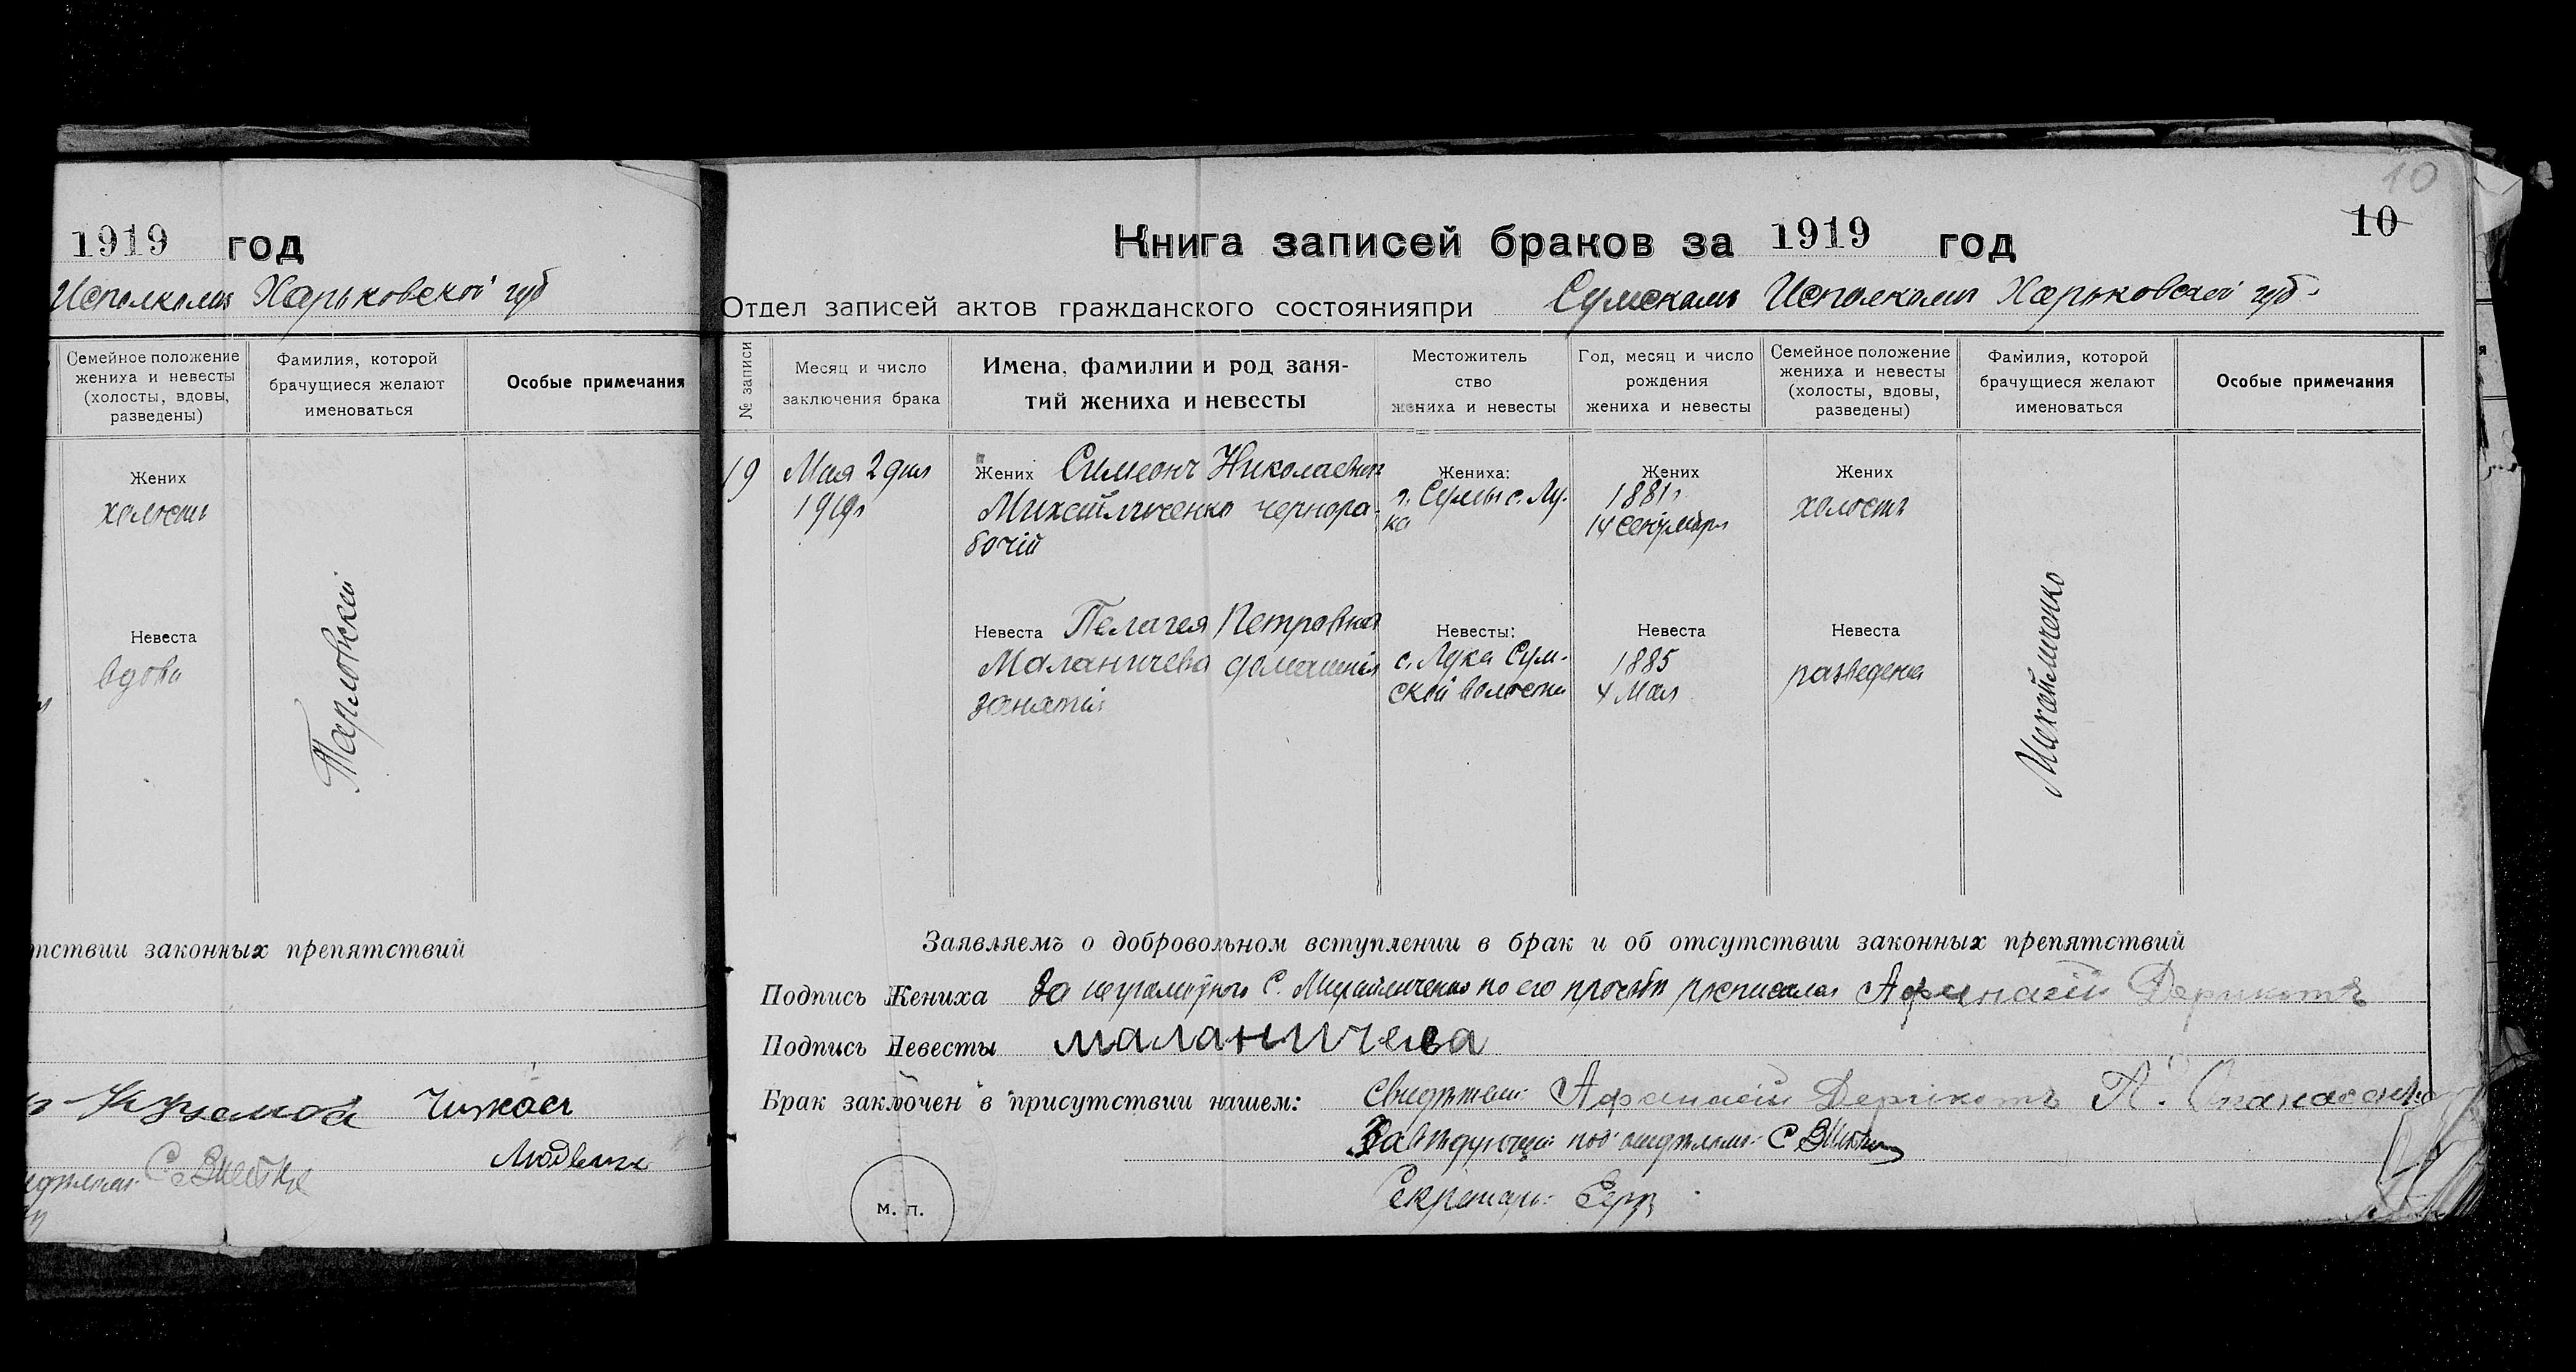 1919 год
Исполкомъ Харьковской губ
Семейное положение
жениха и невесты
(холосты, вдовы,
разведены)
Фамилия, которой
брачущиеся желают
именоваться
Особые примечания
Жених
холостъ
Невеста
вдова
законных препятствий
10
10
Книга записей браков за 1919 год
Отдел записей актов гражданского состоянияпри Сумскомъ Исполкомъ Харьковской губ.
№ записи
Месяц и число
заключения брака
Имена, фамилии и род заня-
тий жениха и невесты
Местожитель
ство
жениха и невесты
Год, месяц и число
рождения
жениха и невесты
Семейное положение
жениха и невесты
(холосты, вдовы,
разведены)
Фамилия, которой
брачущиеся желают
именоваться
Особые примечания
19
Мая 2 дня
1919г
Жених Симеонъ Николаевич
Михайличенко чернора-
бочій
Жениха:
г. Сумы с. Лу-
ка
Жених
1881г
14 Сентября
Жених
холостъ
Невеста Пелагея Петровна
Маланичева домашнія
занятія
Невесты:
с. Лука Сум-
ской волости
Невеста
1885
4 Мая
Невеста
разведена
Михайличенко
Заявляемъ о добровольном вступлении в брак и об отсутствии законных препятствий
Подпись Жениха За неграмотного С. Михайличенко по его просьбе росписался Афанасій Дерикотъ
Подпись Невесты маланичева
Брак заключен в присутствии нашем: Свидѣтели: Афанасій Дерикотъ П.
Завѣдующій подотдѣломъ С
Секретарь:
м. п.